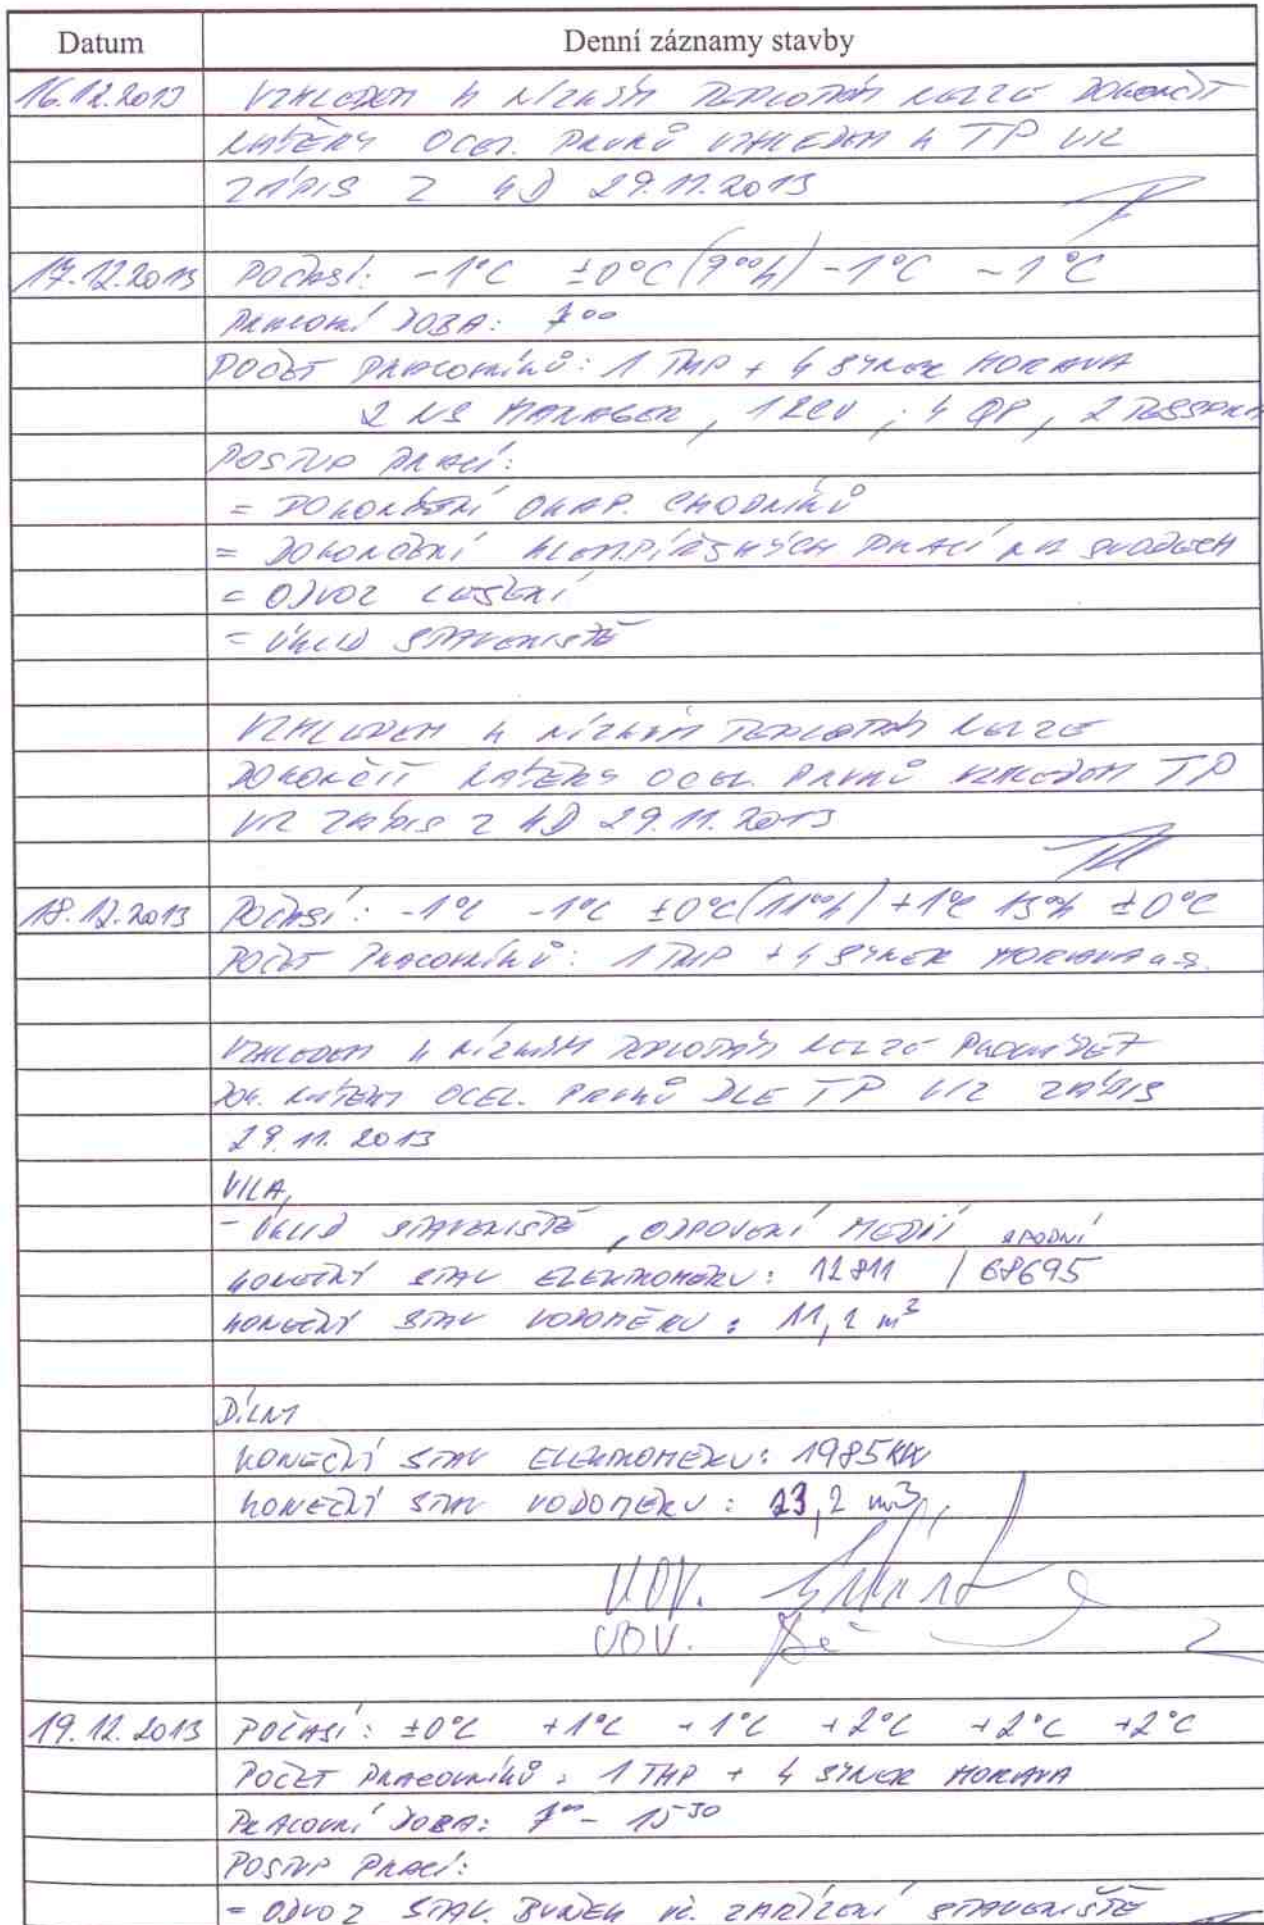 Datum Denní záznamy stavby
16.12.2013 VZHLEDEM K NÍZKÝM TEPLOTÁM NELZE DOKONČIT
NÁTĚRY OCEL. PRVKŮ VZHLEDEM K TP VIZ
ZÁPIS Z KD 29.11.2013
17.12.2013 POČASÍ: -1°C ±0°C (9⁰⁰h) -1°C -1°C
PRACOVNÍ DOBA: 7⁰⁰
POČET PRACOVNÍKŮ: 1 THP + 4 SYNER MORAVA
2 NS MANAGER, 1 , 4 QP, 2
POSTUP PRACÍ:
= DOKONČENÍ OKAP. CHODNÍKŮ
= DOKONČENÍ KLEMPÍŘSKÝCH PRACÍ NA SVODECH
= ODVOZ LEŠENÍ
= ÚKLID STAVENIŠTĚ
VZHLEDEM K NÍZKÝM TEPLOTÁM NELZE
DOKONČIT NÁTĚRY OCEL. PRVKŮ VZHLEDEM TP
VIZ ZÁPIS Z KD 29.11.2013
18.12.2013 POČASÍ: -1°C -1°C ±0°C (11⁰⁰h) +1°C 13⁰⁰h ±0°C
POČET PRACOVNÍKŮ: 1 THP + 4 SYNER MORAVA a.s.
VZHLEDEM K NÍZKÝM TEPLOTÁM NELZE PROVÁDĚT
DOK. NÁTĚRY OCEL. PRVKŮ DLE TP VIZ ZÁPIS
29.11.2013
VILA,
- ÚKLID STAVENIŠTĚ, ODPOJENÍ MEDIÍ SPODNÍ
KONEČNÝ STAV ELEKTROMĚRU: 12811 / 68695
KONEČNÝ STAV VODOMĚRU: 11,2 m³
DÍLNY
KONEČNÝ STAV ELEKTROMĚRU: 1985 KW
KONEČNÝ STAV VODOMĚRU: 23,2 m³
19.12.2013 POČASÍ: ±0°C +1°C +1°C +2°C +2°C +2°C
POČET PRACOVNÍKŮ: 1 THP + 4 SYNER MORAVA
PRACOVNÍ DOBA: 7⁰⁰ - 15³⁰
POSTUP PRACÍ:
= ODVOZ STAV. BUNĚK VČ. ZAŘÍZENÍ STAVENIŠTĚ